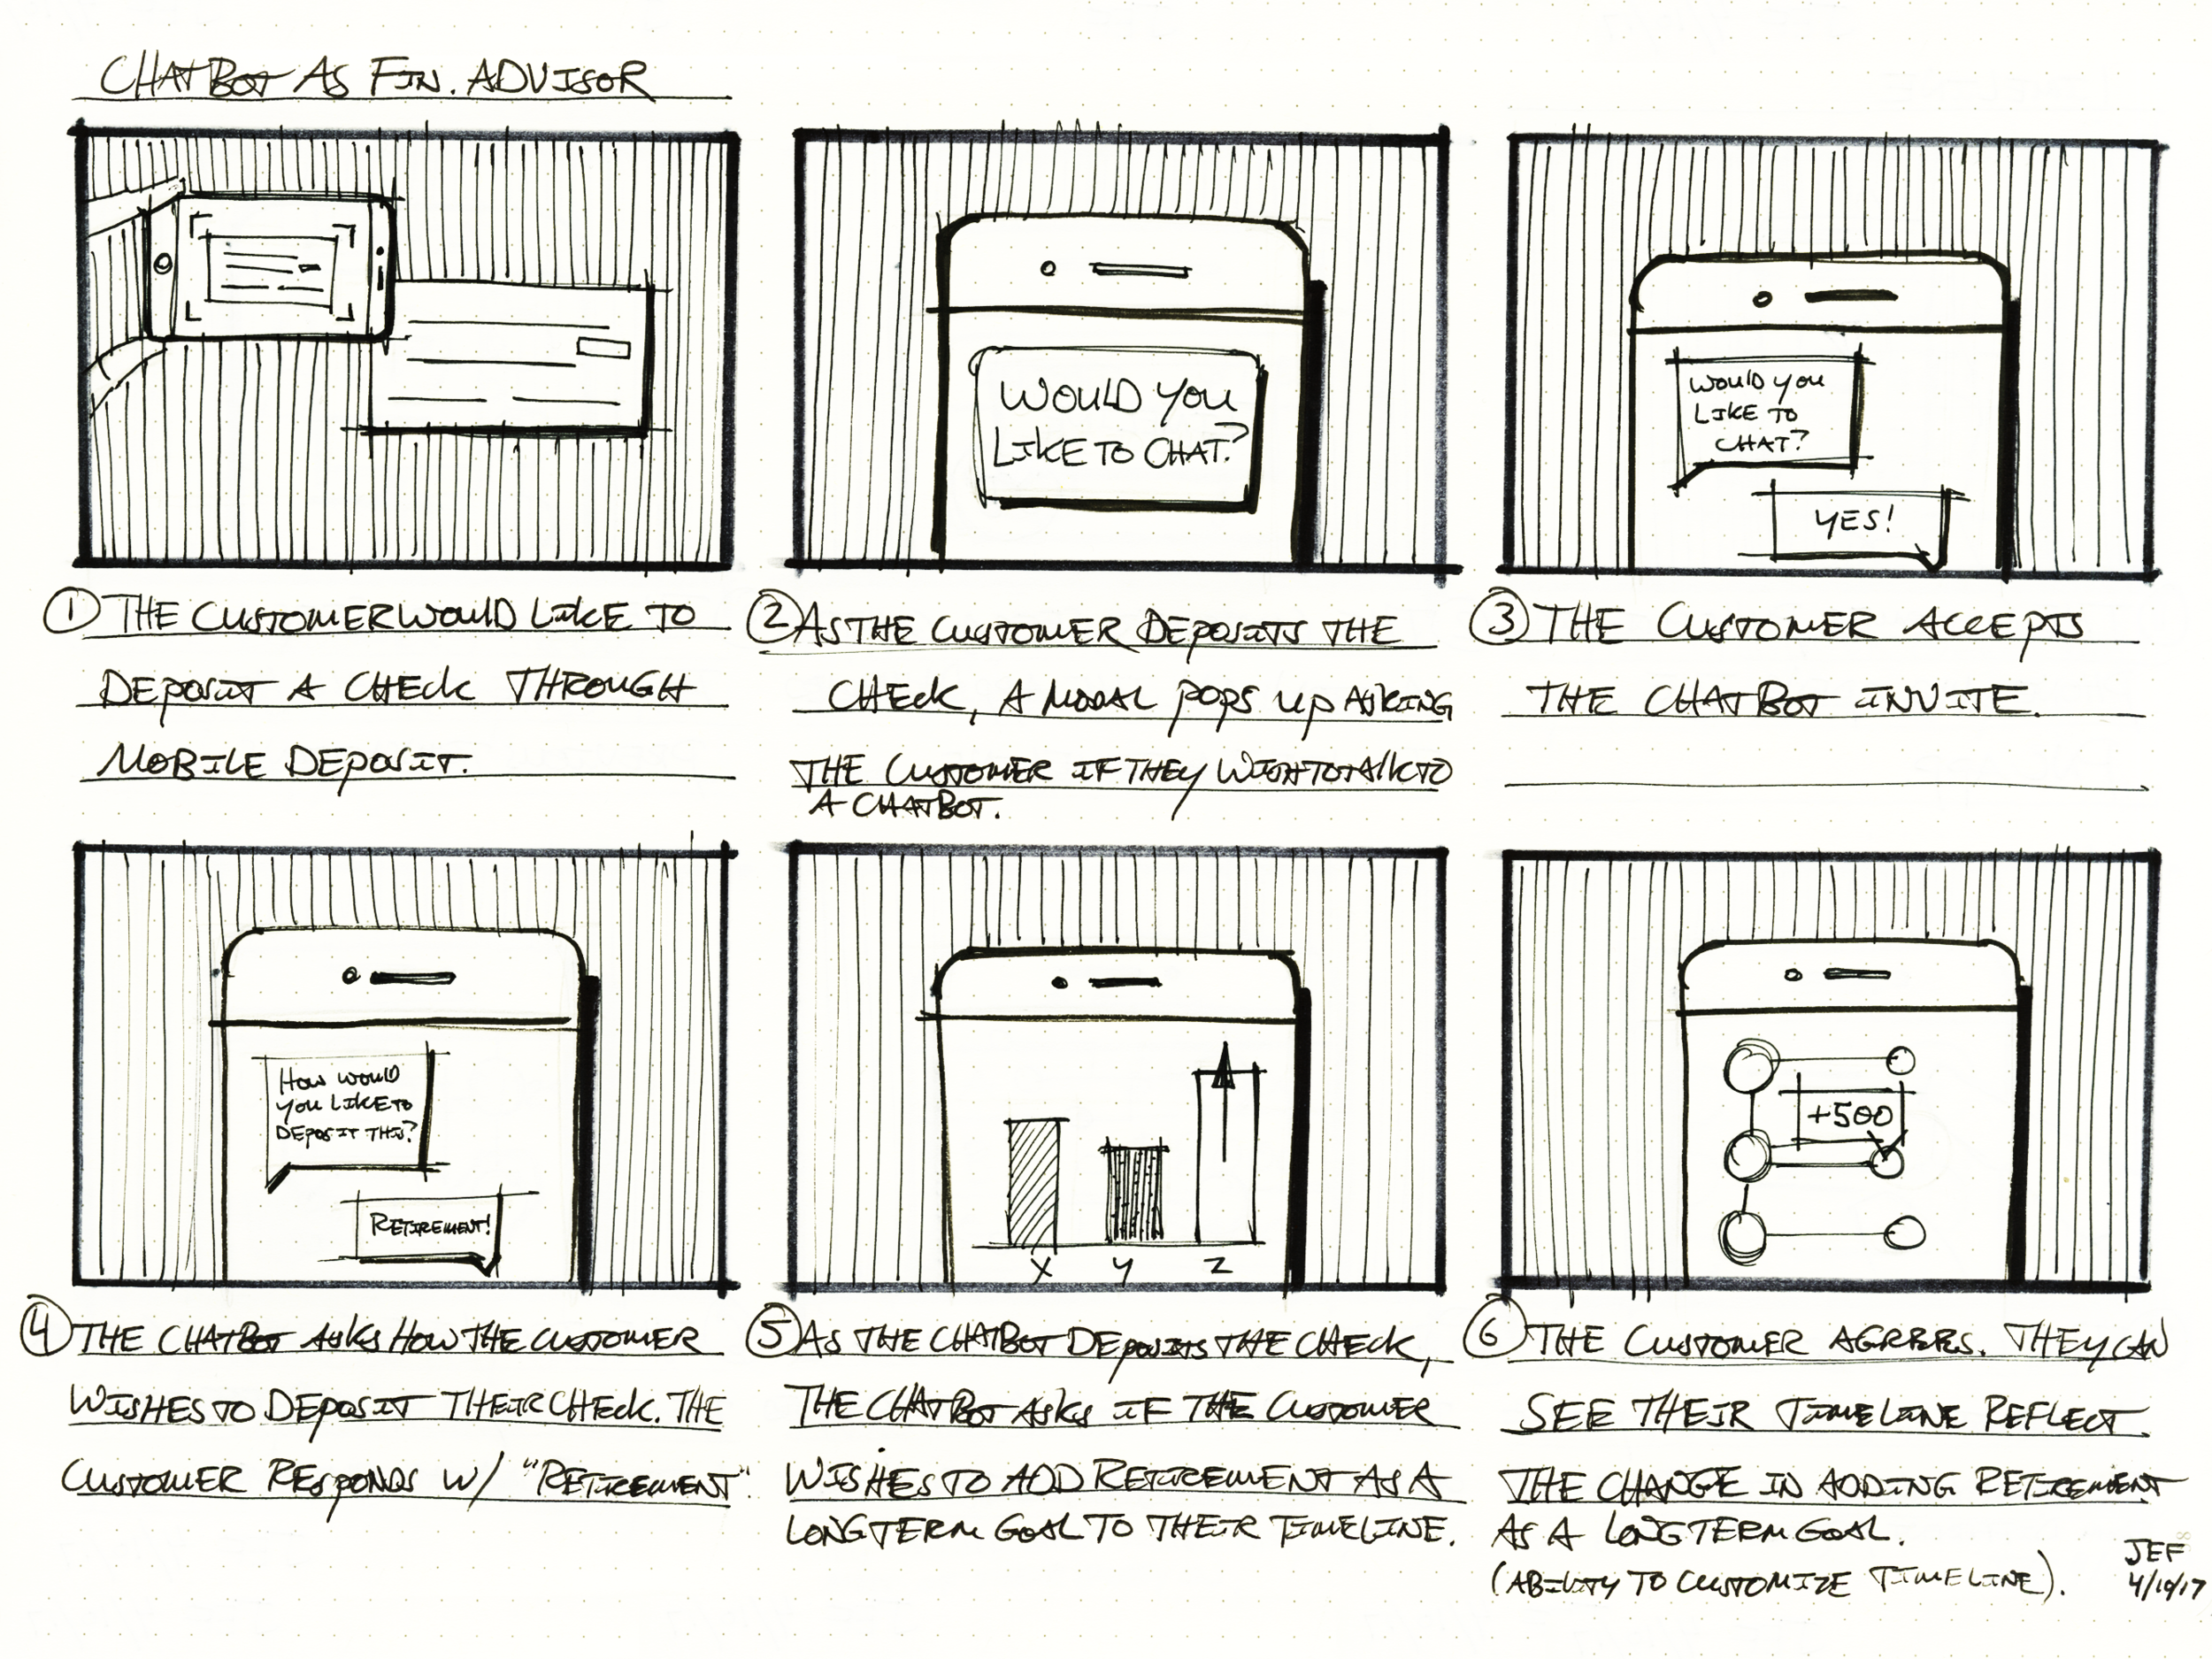 CHATBOT AS FIN. ADVISOR
WOULD YOU
LIKE TO CHAT?
WOULD YOU
LIKE TO
CHAT?
YES!
① THE CUSTOMER WOULD LIKE TO
DEPOSIT A CHECK THROUGH
MOBILE DEPOSIT.
② AS THE CUSTOMER DEPOSITS THE
CHECK, A MODAL POPS UP ASKING
THE CUSTOMER IF THEY WISH TO TALK TO
A CHATBOT.
③ THE CUSTOMER ACCEPTS
THE CHATBOT INVITE.
HOW WOULD
YOU LIKE TO
DEPOSIT THIS?
RETIREMENT!
X Y Z
+500
④ THE CHATBOT ASKS HOW THE CUSTOMER
WISHES TO DEPOSIT THEIR CHECK. THE
CUSTOMER RESPONDS W/ "RETIREMENT".
⑤ AS THE CHATBOT DEPOSITS THE CHECK,
THE CHATBOT ASKS IF THE CUSTOMER
WISHES TO ADD RETIREMENT AS A
LONG TERM GOAL TO THEIR TIMELINE.
⑥ THE CUSTOMER AGREES. THEY CAN
SEE THEIR TIMELINE REFLECT
THE CHANGE IN ADDING RETIREMENT
AS A LONG TERM GOAL.
(ABILITY TO CUSTOMIZE TIMELINE).
JEF
4/10/17